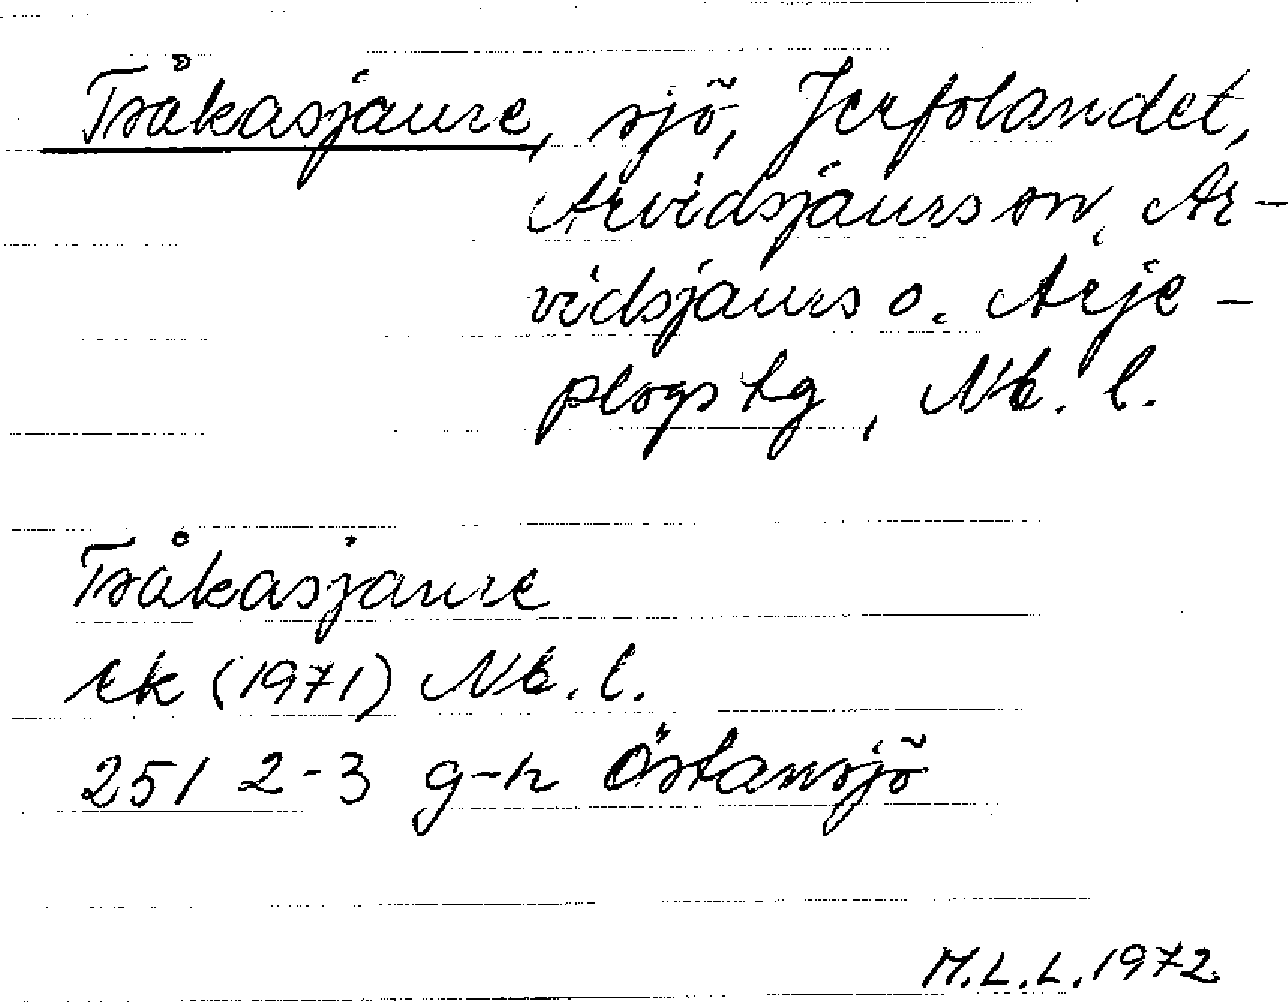 Tsåkasjaure, sjö, Jerfolandet,
Arvidsjaurs sn, Ar-
vidsjaurs o. Arje-
plogs tg, Nb. l.
Tsåkasjaure
ek (1971) Nb. l.
251 2-3 g-h Östansjö
M.L.L. 1972